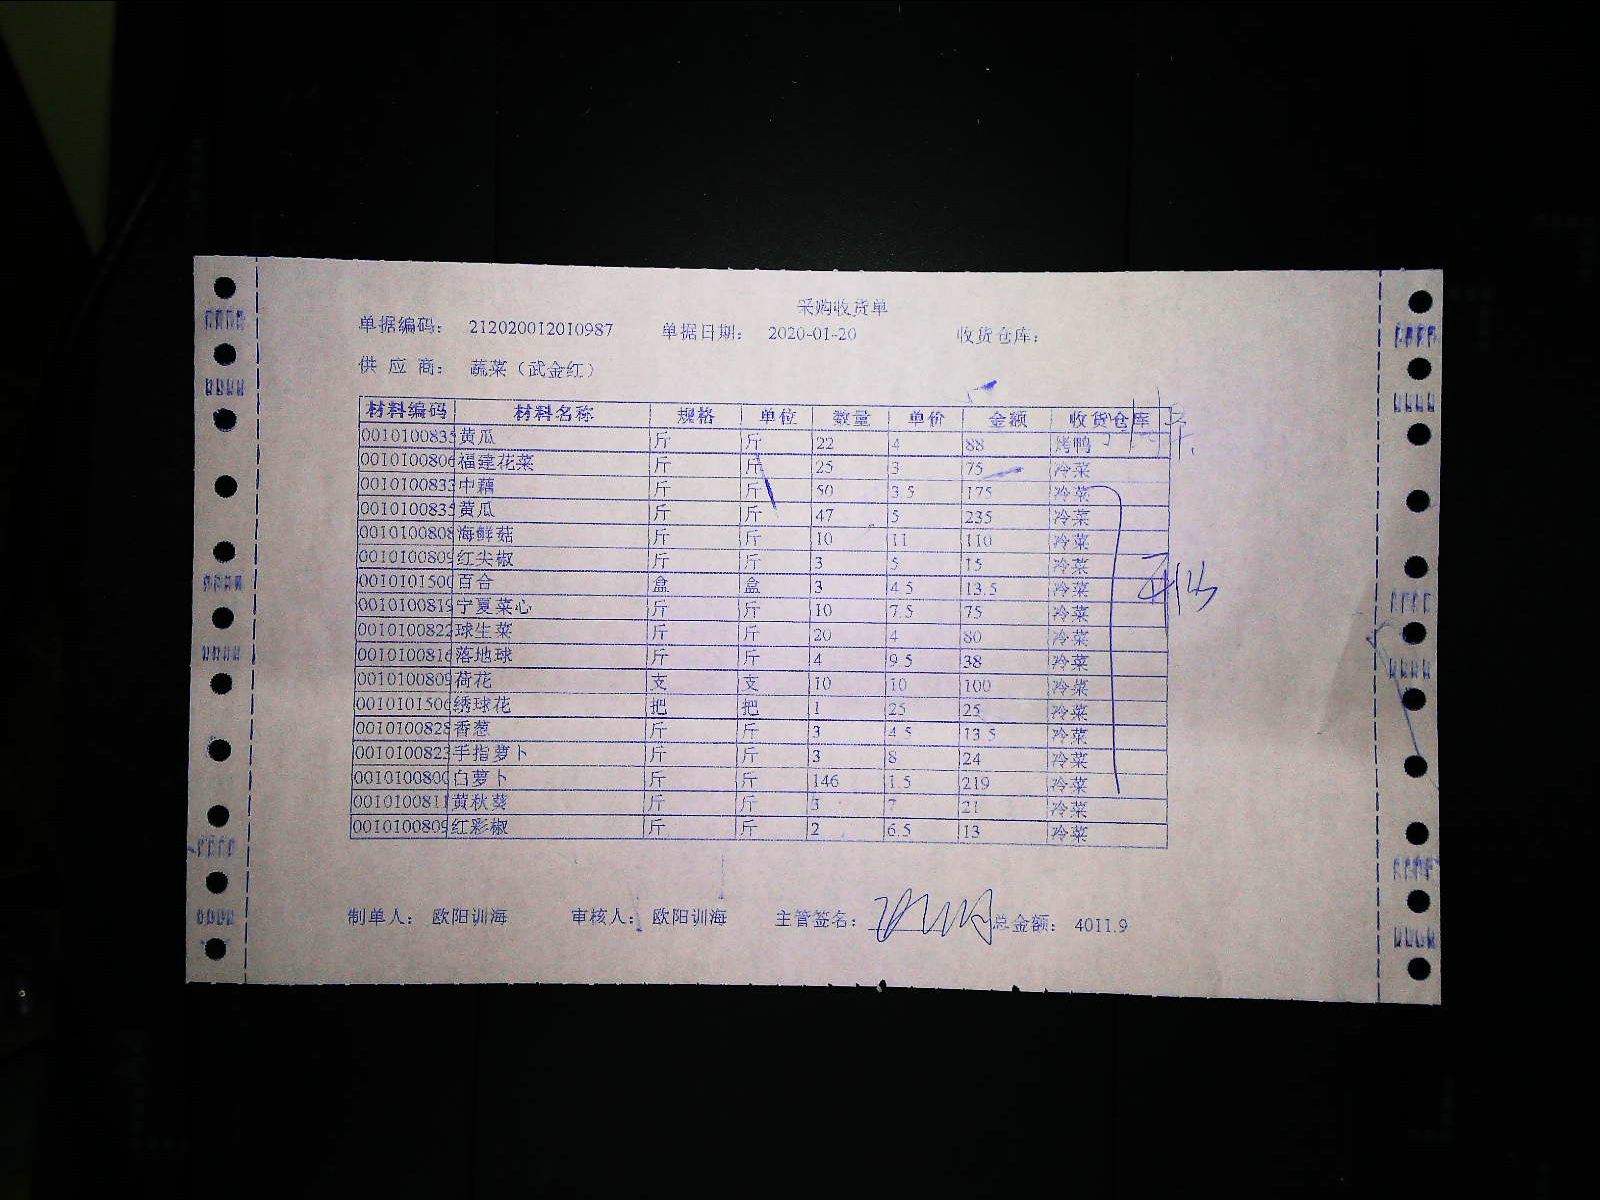 采购收货单
单据编码： 212020012010987 单据日期： 2020-01-20 收货仓库：
供 应 商： 蔬菜（武金红）
材料编码 材料名称 规格 单位 数量 单价 金额 收货仓库
0010100835 黄瓜 斤 斤 22 4 88 烤鸭
0010100806 福建花菜 斤 斤 25 3 75 冷菜
0010100833 中藕 斤 斤 50 3.5 175 冷菜
0010100835 黄瓜 斤 斤 47 5 235 冷菜
0010100808 海鲜菇 斤 斤 10 11 110 冷菜
0010100809 红尖椒 斤 斤 3 5 15 冷菜
0010101500 百合 盒 盒 3 4.5 13.5 冷菜
0010100819 宁夏菜心 斤 斤 10 7.5 75 冷菜
0010100822 球生菜 斤 斤 20 4 80 冷菜
0010100816 落地球 斤 斤 4 9.5 38 冷菜
0010100809 荷花 支 支 10 10 100 冷菜
0010101506 绣球花 把 把 1 25 25 冷菜
0010100828 香葱 斤 斤 3 4.5 13.5 冷菜
0010100823 手指萝卜 斤 斤 3 8 24 冷菜
0010100800 白萝卜 斤 斤 146 1.5 219 冷菜
0010100811 黄秋葵 斤 斤 3 7 21 冷菜
0010100809 红彩椒 斤 斤 2 6.5 13 冷菜
制单人： 欧阳训海 审核人： 欧阳训海 主管签名： 总金额： 4011.9